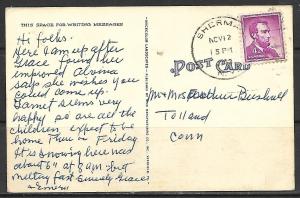 THIS SPACE FOR WRITING MESSAGES
Hi folks.
Here I am up after
Grace found her
improved Alvena
says she wishes you
could come up.
Garnet seems very
happy so are all the
children expect to be
home Thur or Friday
It is snowing here had
about 6" at 8 am. but
melting fast Sincerely Grace
& Emery
SHERM
NOV 12
5 PM
POST CARD
Mr & Mrs Arthur Bushnell
Tolland
Conn